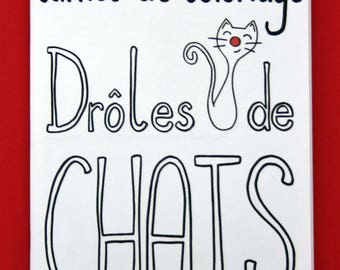 Carnet de coloriage
Drôles de
CHATS